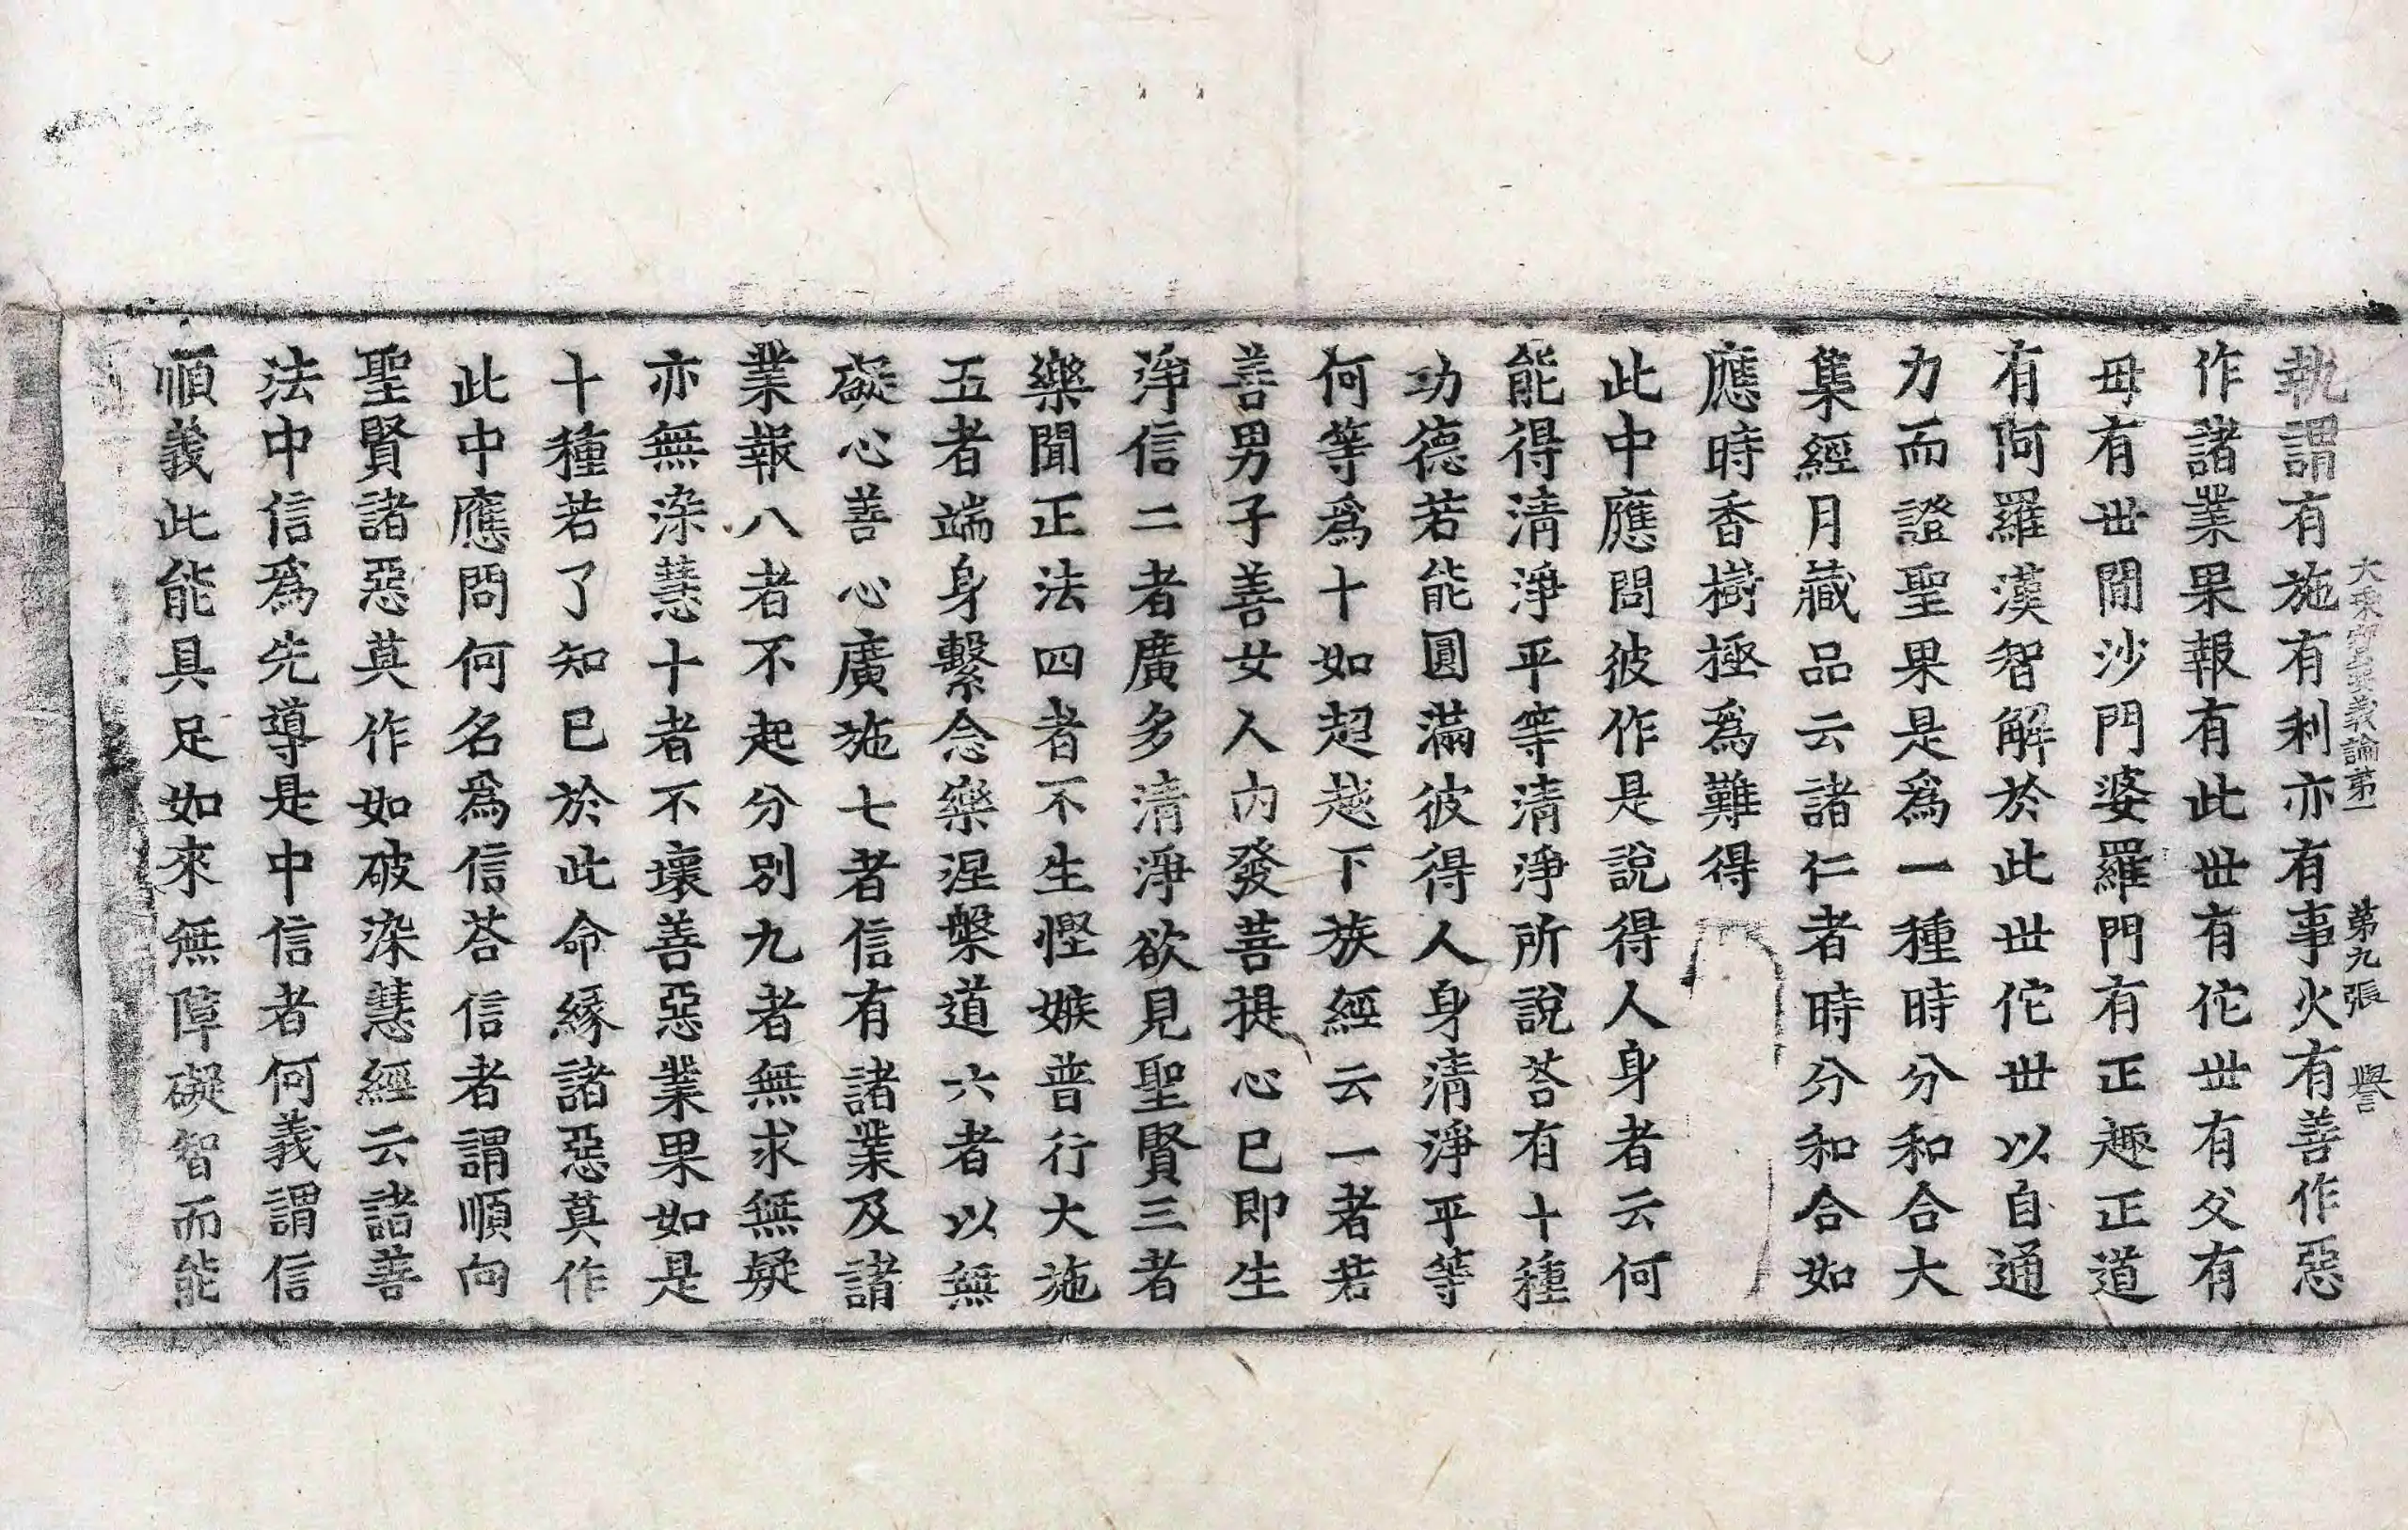 大乘寶要義論第一　第九張　譽
執謂有施有利亦有事火有善作惡
作諸業果報有此世有佗世有父有
毋有世間沙門婆羅門有正趣正道
有阿羅漢智解於此世佗世以自通
力而證聖果是爲一種時分和合大
集經月藏品云諸仁者時分和合如
應時香樹極爲難得
此中應問彼作是說得人身者云何
能得清淨平等清淨所說荅有十種
功德若能圓滿彼得人身清淨平等
何等爲十如超越下族經云一者若
善男子善女人內發菩提心已即生
淨信二者廣多清淨欲見聖賢三者
樂聞正法四者不生慳嫉普行大施
五者端身繫念樂涅槃道六者以無
礙心善心廣施七者信有諸業及諸
業報八者不起分別九者無求無疑
亦無染慧十者不壞善惡業果如是
十種若了知已於此命緣諸惡莫作
此中應問何名爲信荅信者謂順向
聖賢諸惡莫作如破染慧經云諸善
法中信爲先導是中信者何義謂信
順義此能具足如來無障礙智而能